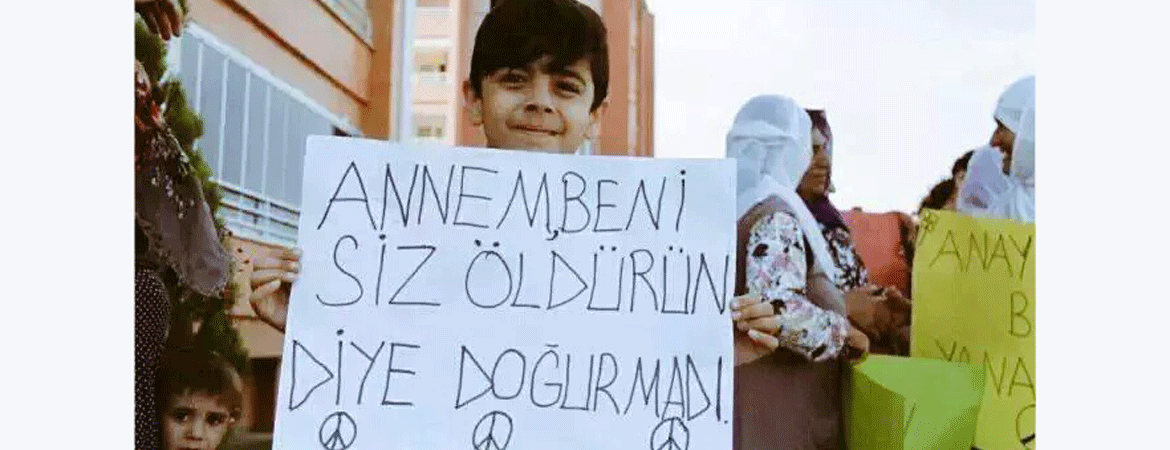 ANNEM, BENİ
SİZ ÖLDÜRÜN
DİYE DOĞURMADI.
ANAY
B
YANA